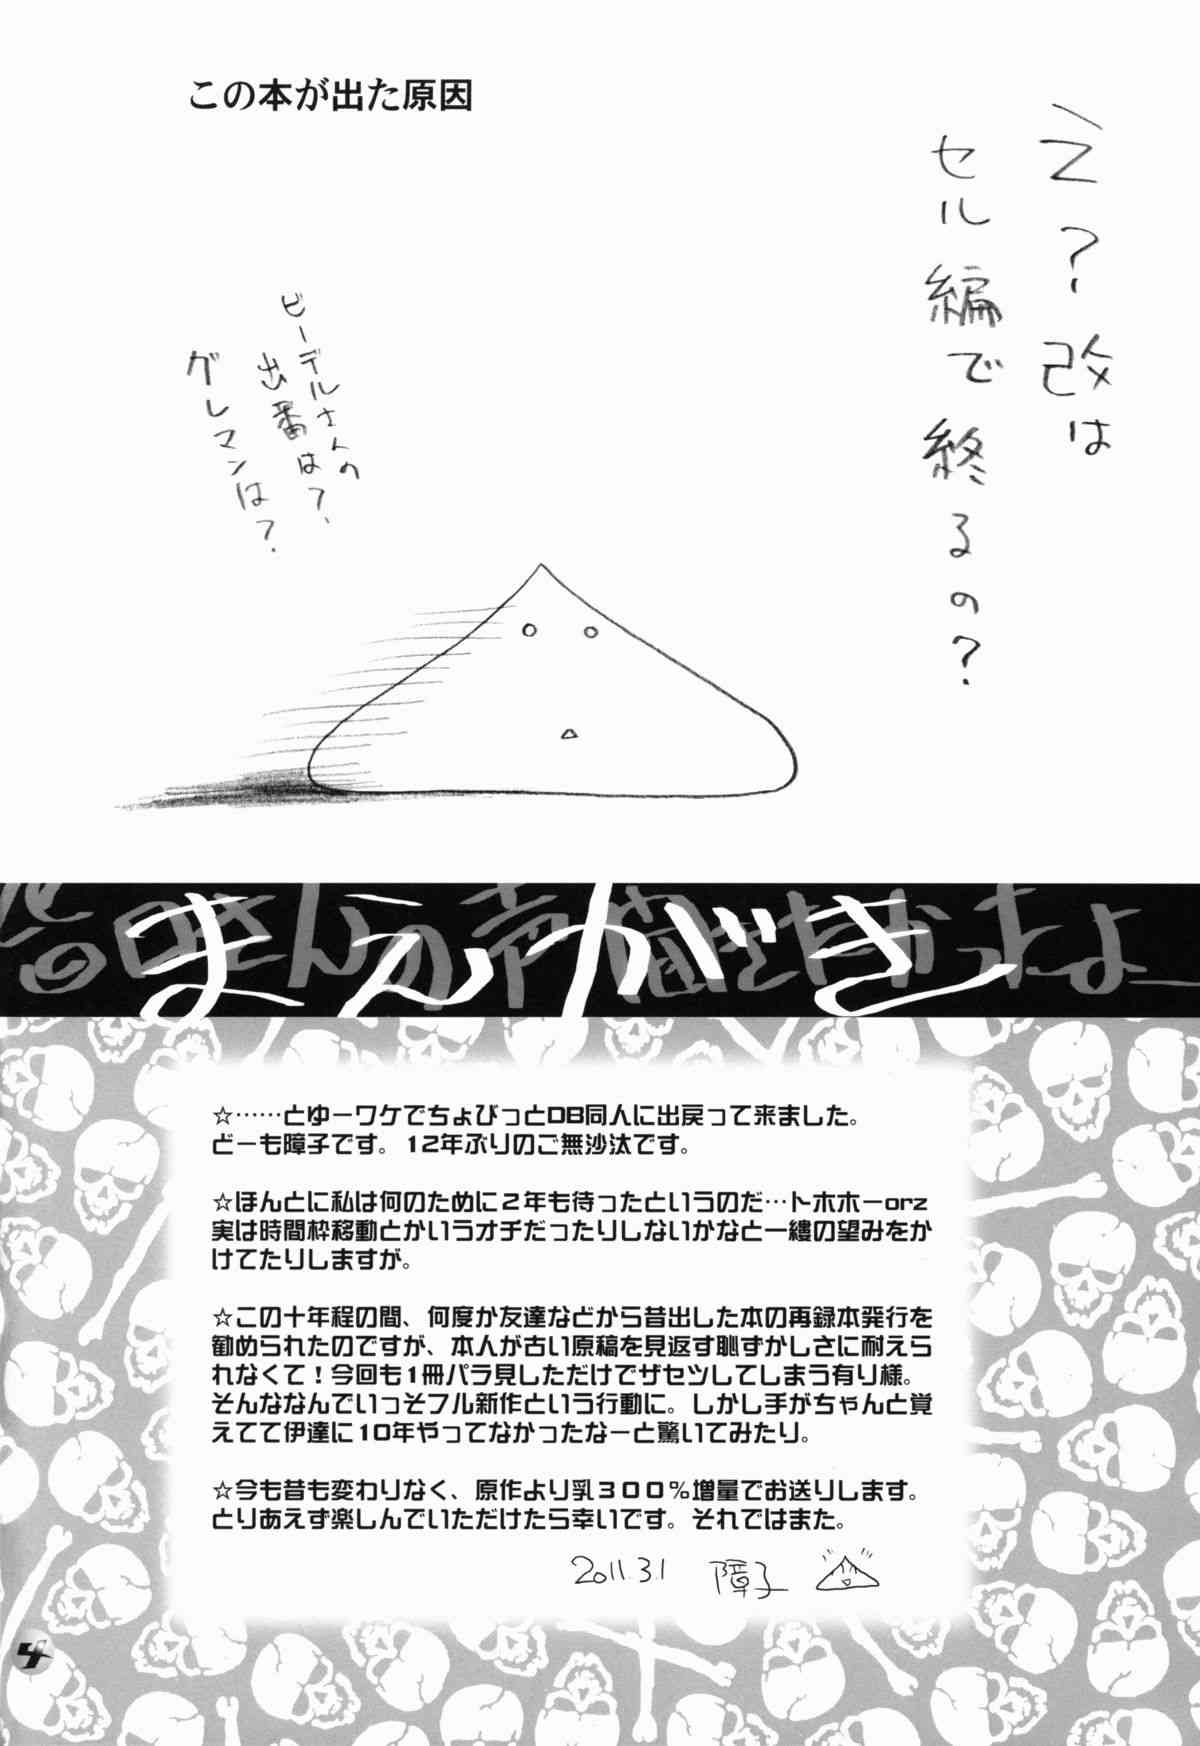 この本が出た原因
え？改は
セル編で終るの？
ビーデルさんの
出番は？
グレマンは？
まえがき
☆……とゆーワケでちょびっとDB同人に出戻って来ました。
どーも障子です。12年ぶりのご無沙汰です。
☆ほんとに私は何のために２年も待ったというのだ…トホホーorz
実は時間枠移動とかいうオチだったりしないかなと一縷の望みをか
けてたりしますが。
☆この十年程の間、何度か友達などから昔出した本の再録本発行を
勧められたのですが、本人が古い原稿を見返す恥ずかしさに耐えら
れなくて！今回も１冊パラ見しただけでザセツしてしまう有り様。
そんななんでいっそフル新作という行動に。しかし手がちゃんと覚
えてて伊達に10年やってなかったなーと驚いてみたり。
☆今も昔も変わりなく、原作より乳３００％増量でお送りします。
とりあえず楽しんでいただけたら幸いです。それではまた。
2011.3.1 障子
4